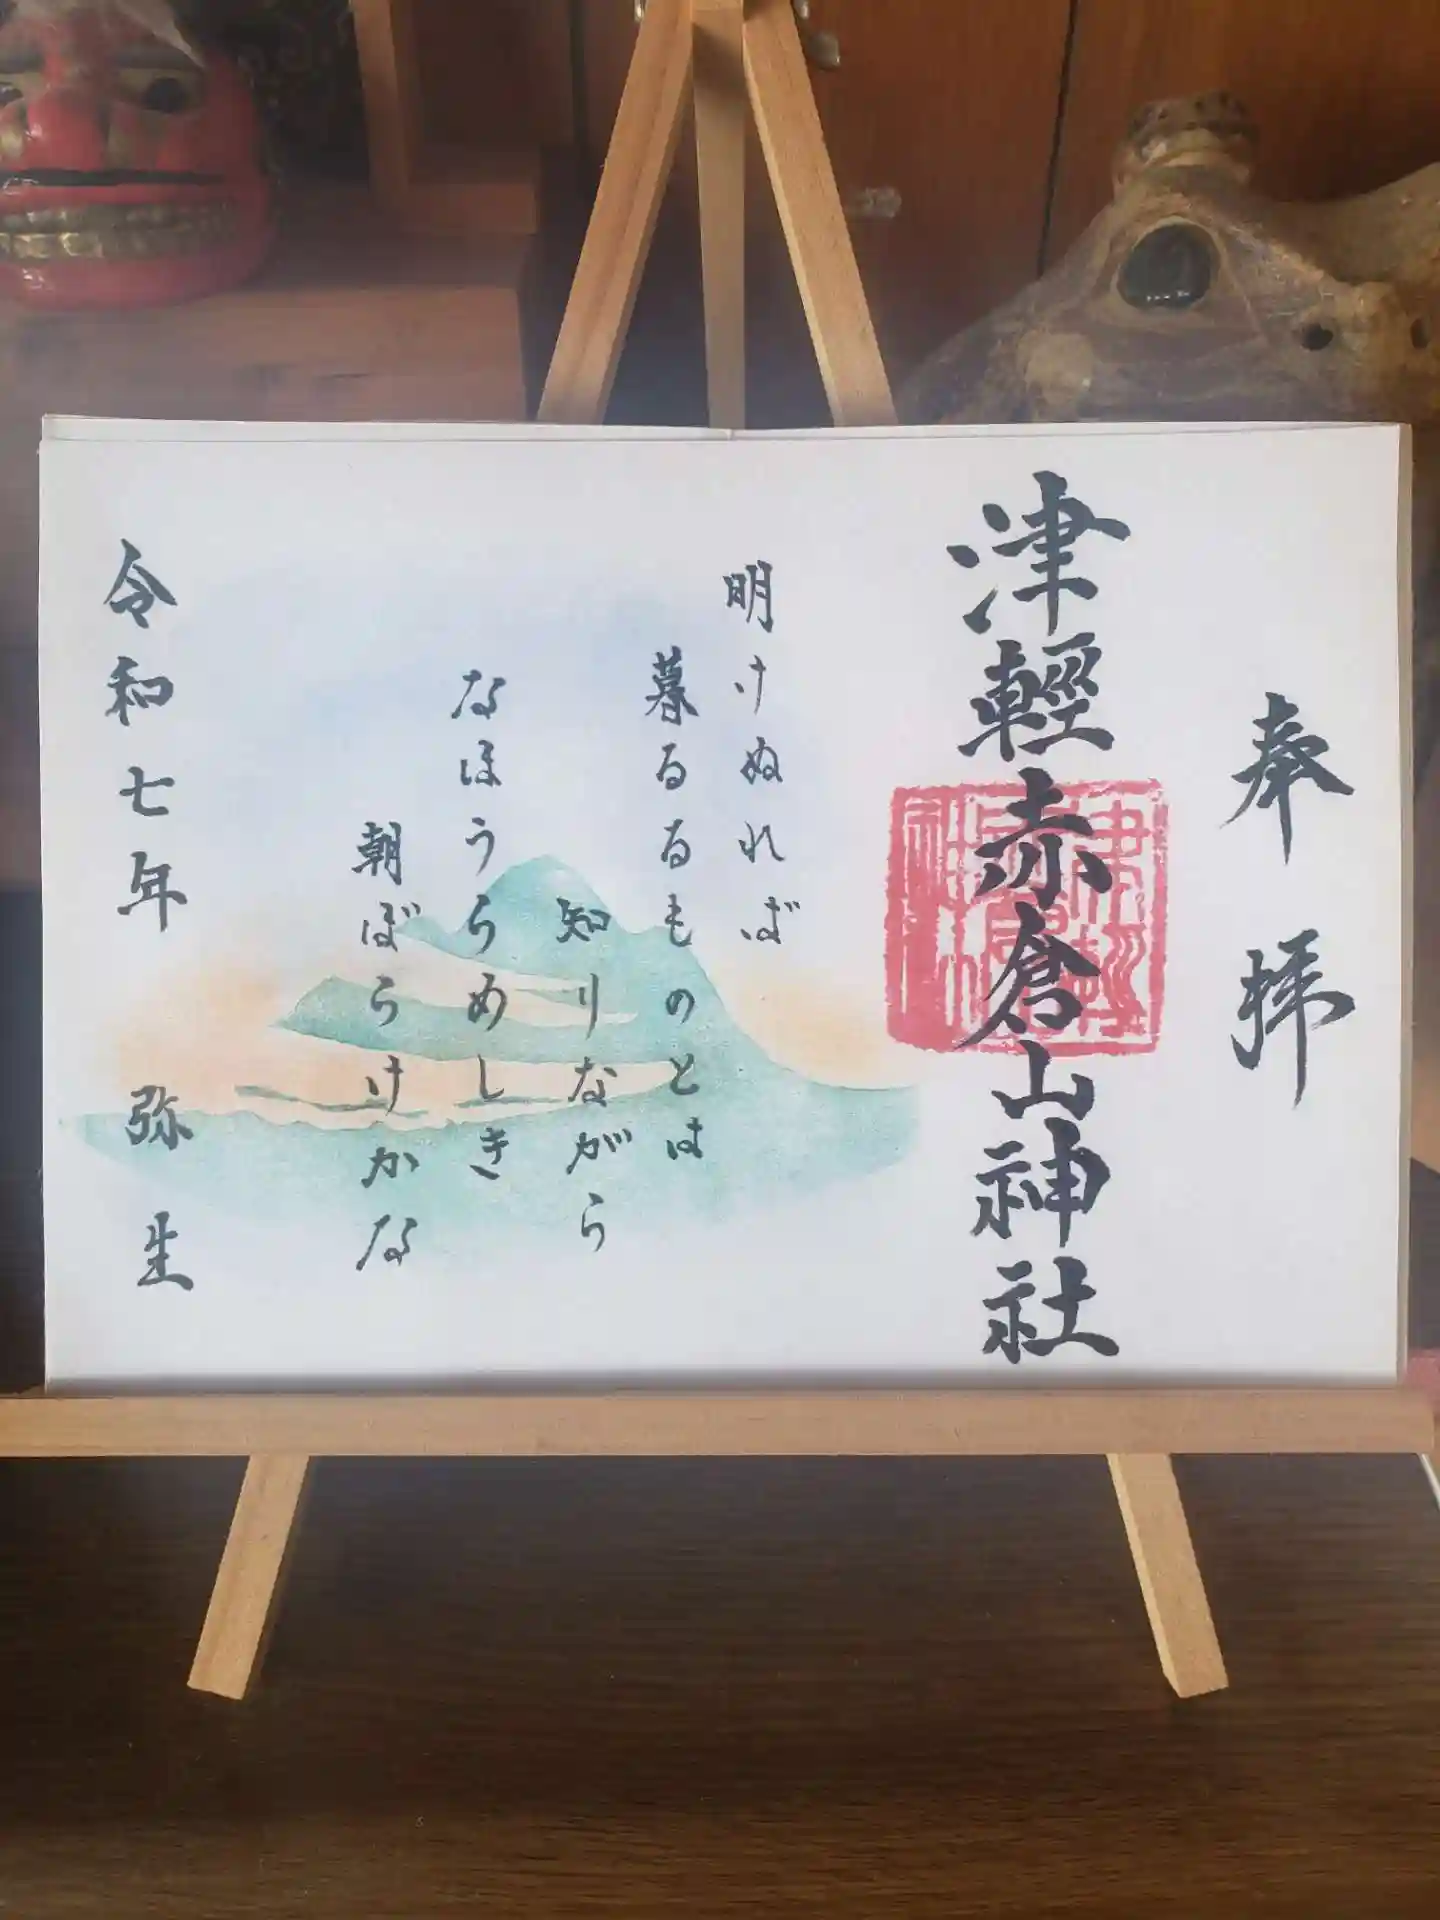 奉拝
津輕赤倉山神社
明けぬれば
暮るるものとは
知りながら
なほうらめしき
朝ぼらけかな
令和七年 弥生